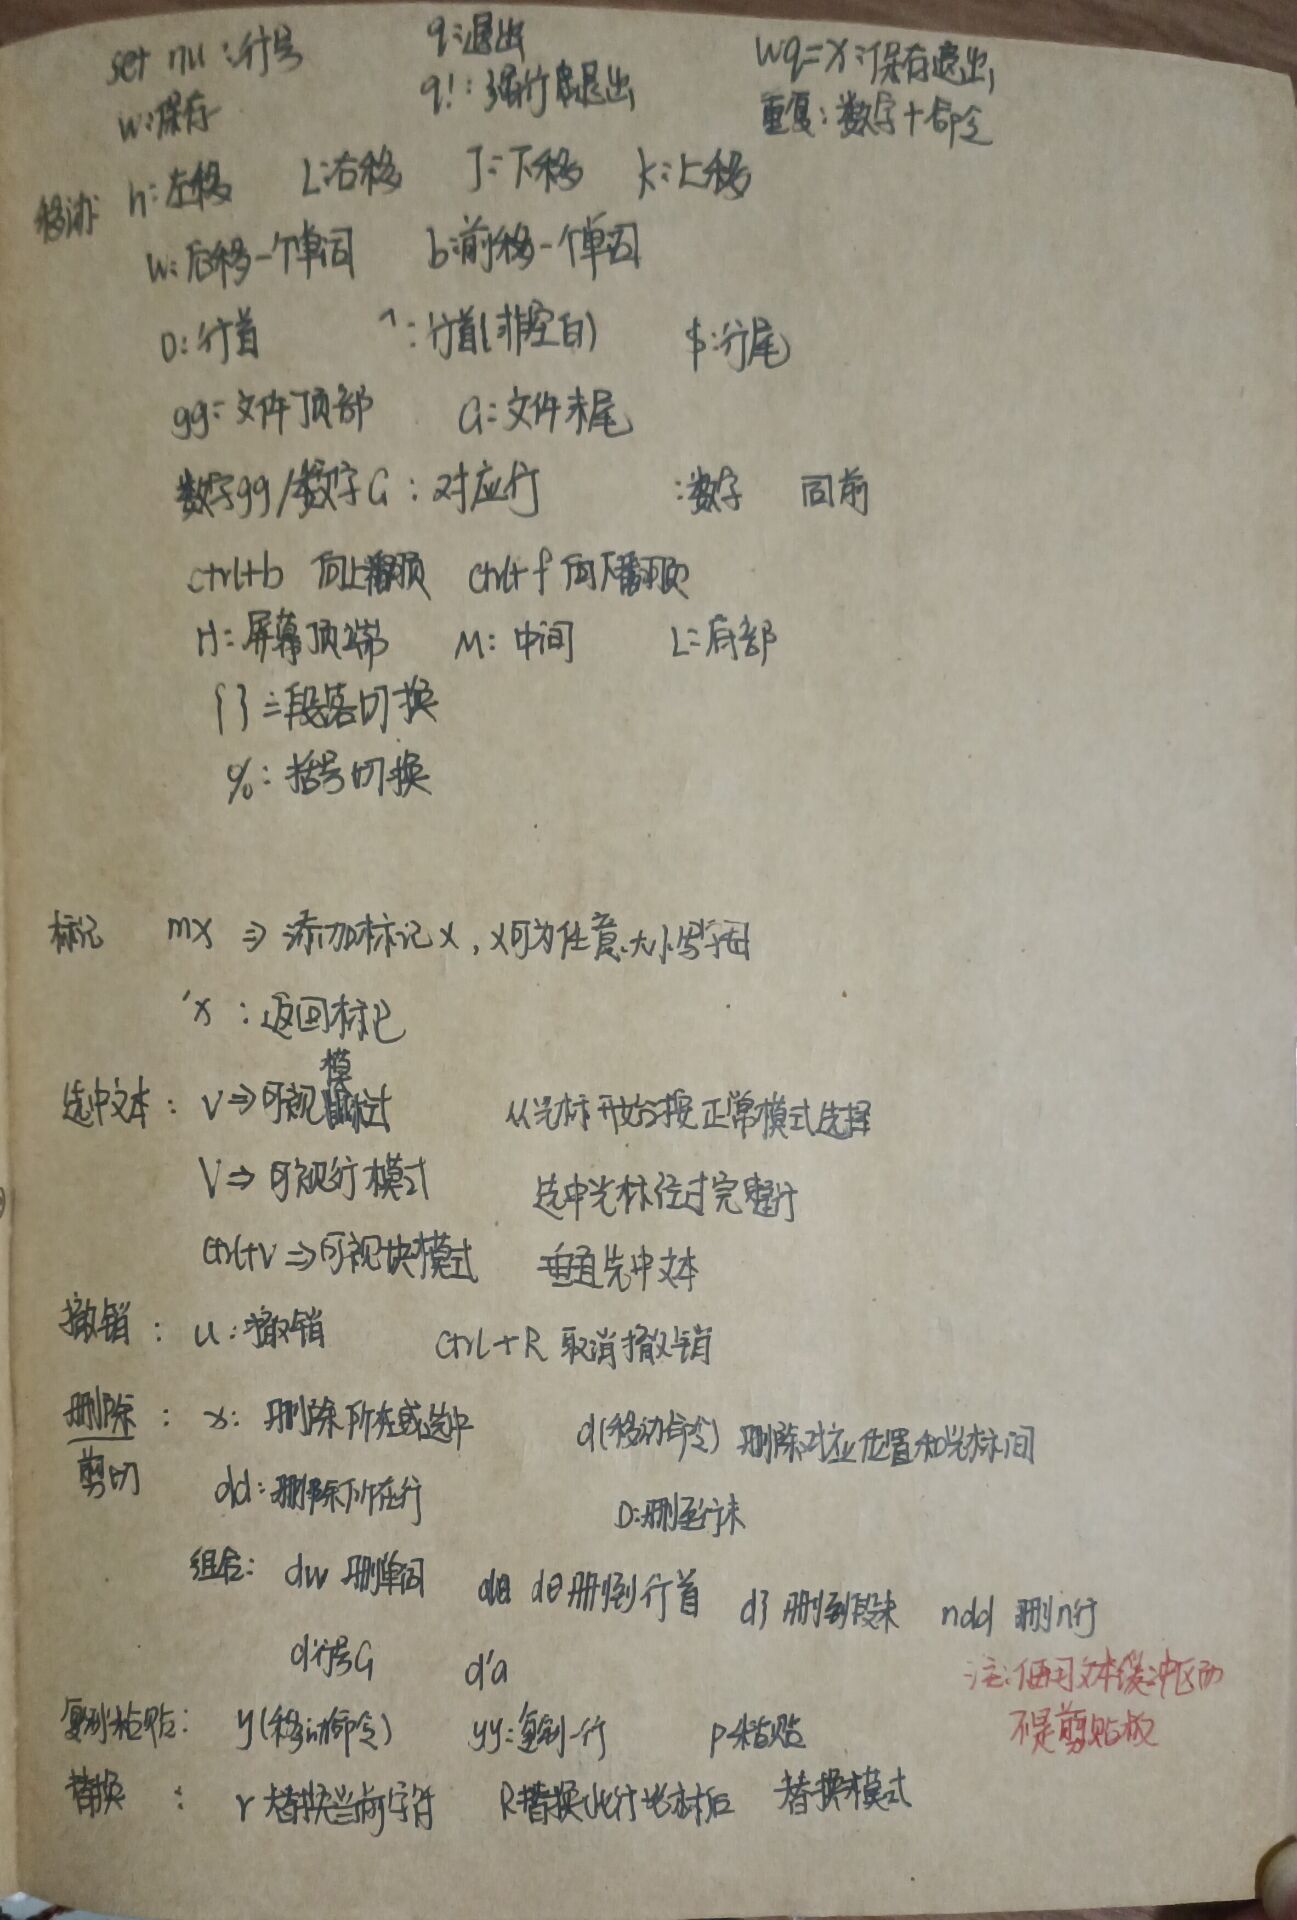 set nu：行号 q：退出 wq=x：保存退出
w：保存 q!：强行退出 重复：数字+命令
移动： h：左移 L：右移 J：下移 k：上移
w：后移一个单词 b：前移一个单词
0：行首 ^：行首(非空白) $：行尾
gg：文件顶部 G：文件末尾
数字gg/数字G：对应行 :数字 同前
ctrl+b 向上翻页 ctrl+f 向下翻页
H：屏幕顶端 M：中间 L：底部
{ }：段落切换
%：括号切换
标记 mx ⇒ 添加标记x，x可为任意大小写字母
'x：返回标记
选中文本： v⇒可视模式 从光标开始按正常模式选择
V⇒可视行模式 选中光标经过完整行
Ctrl+v⇒可视块模式 垂直选中文本
撤销： u：撤销 Ctrl+R 取消撤销
删除： x：删除所在或选中 d(移动命令) 删除对应位置和光标间
剪切 dd：删除所在行 D：删至行末
组合： dw 删单词 d0 删到行首 d} 删到段末 ndd 删n行
d行号G d'a 注：使用文本缓冲区而
不是剪贴板
复制粘贴： y(移动命令) yy：复制一行 p 粘贴
替换： r 替换当前字符 R 替换此行光标后 替换模式